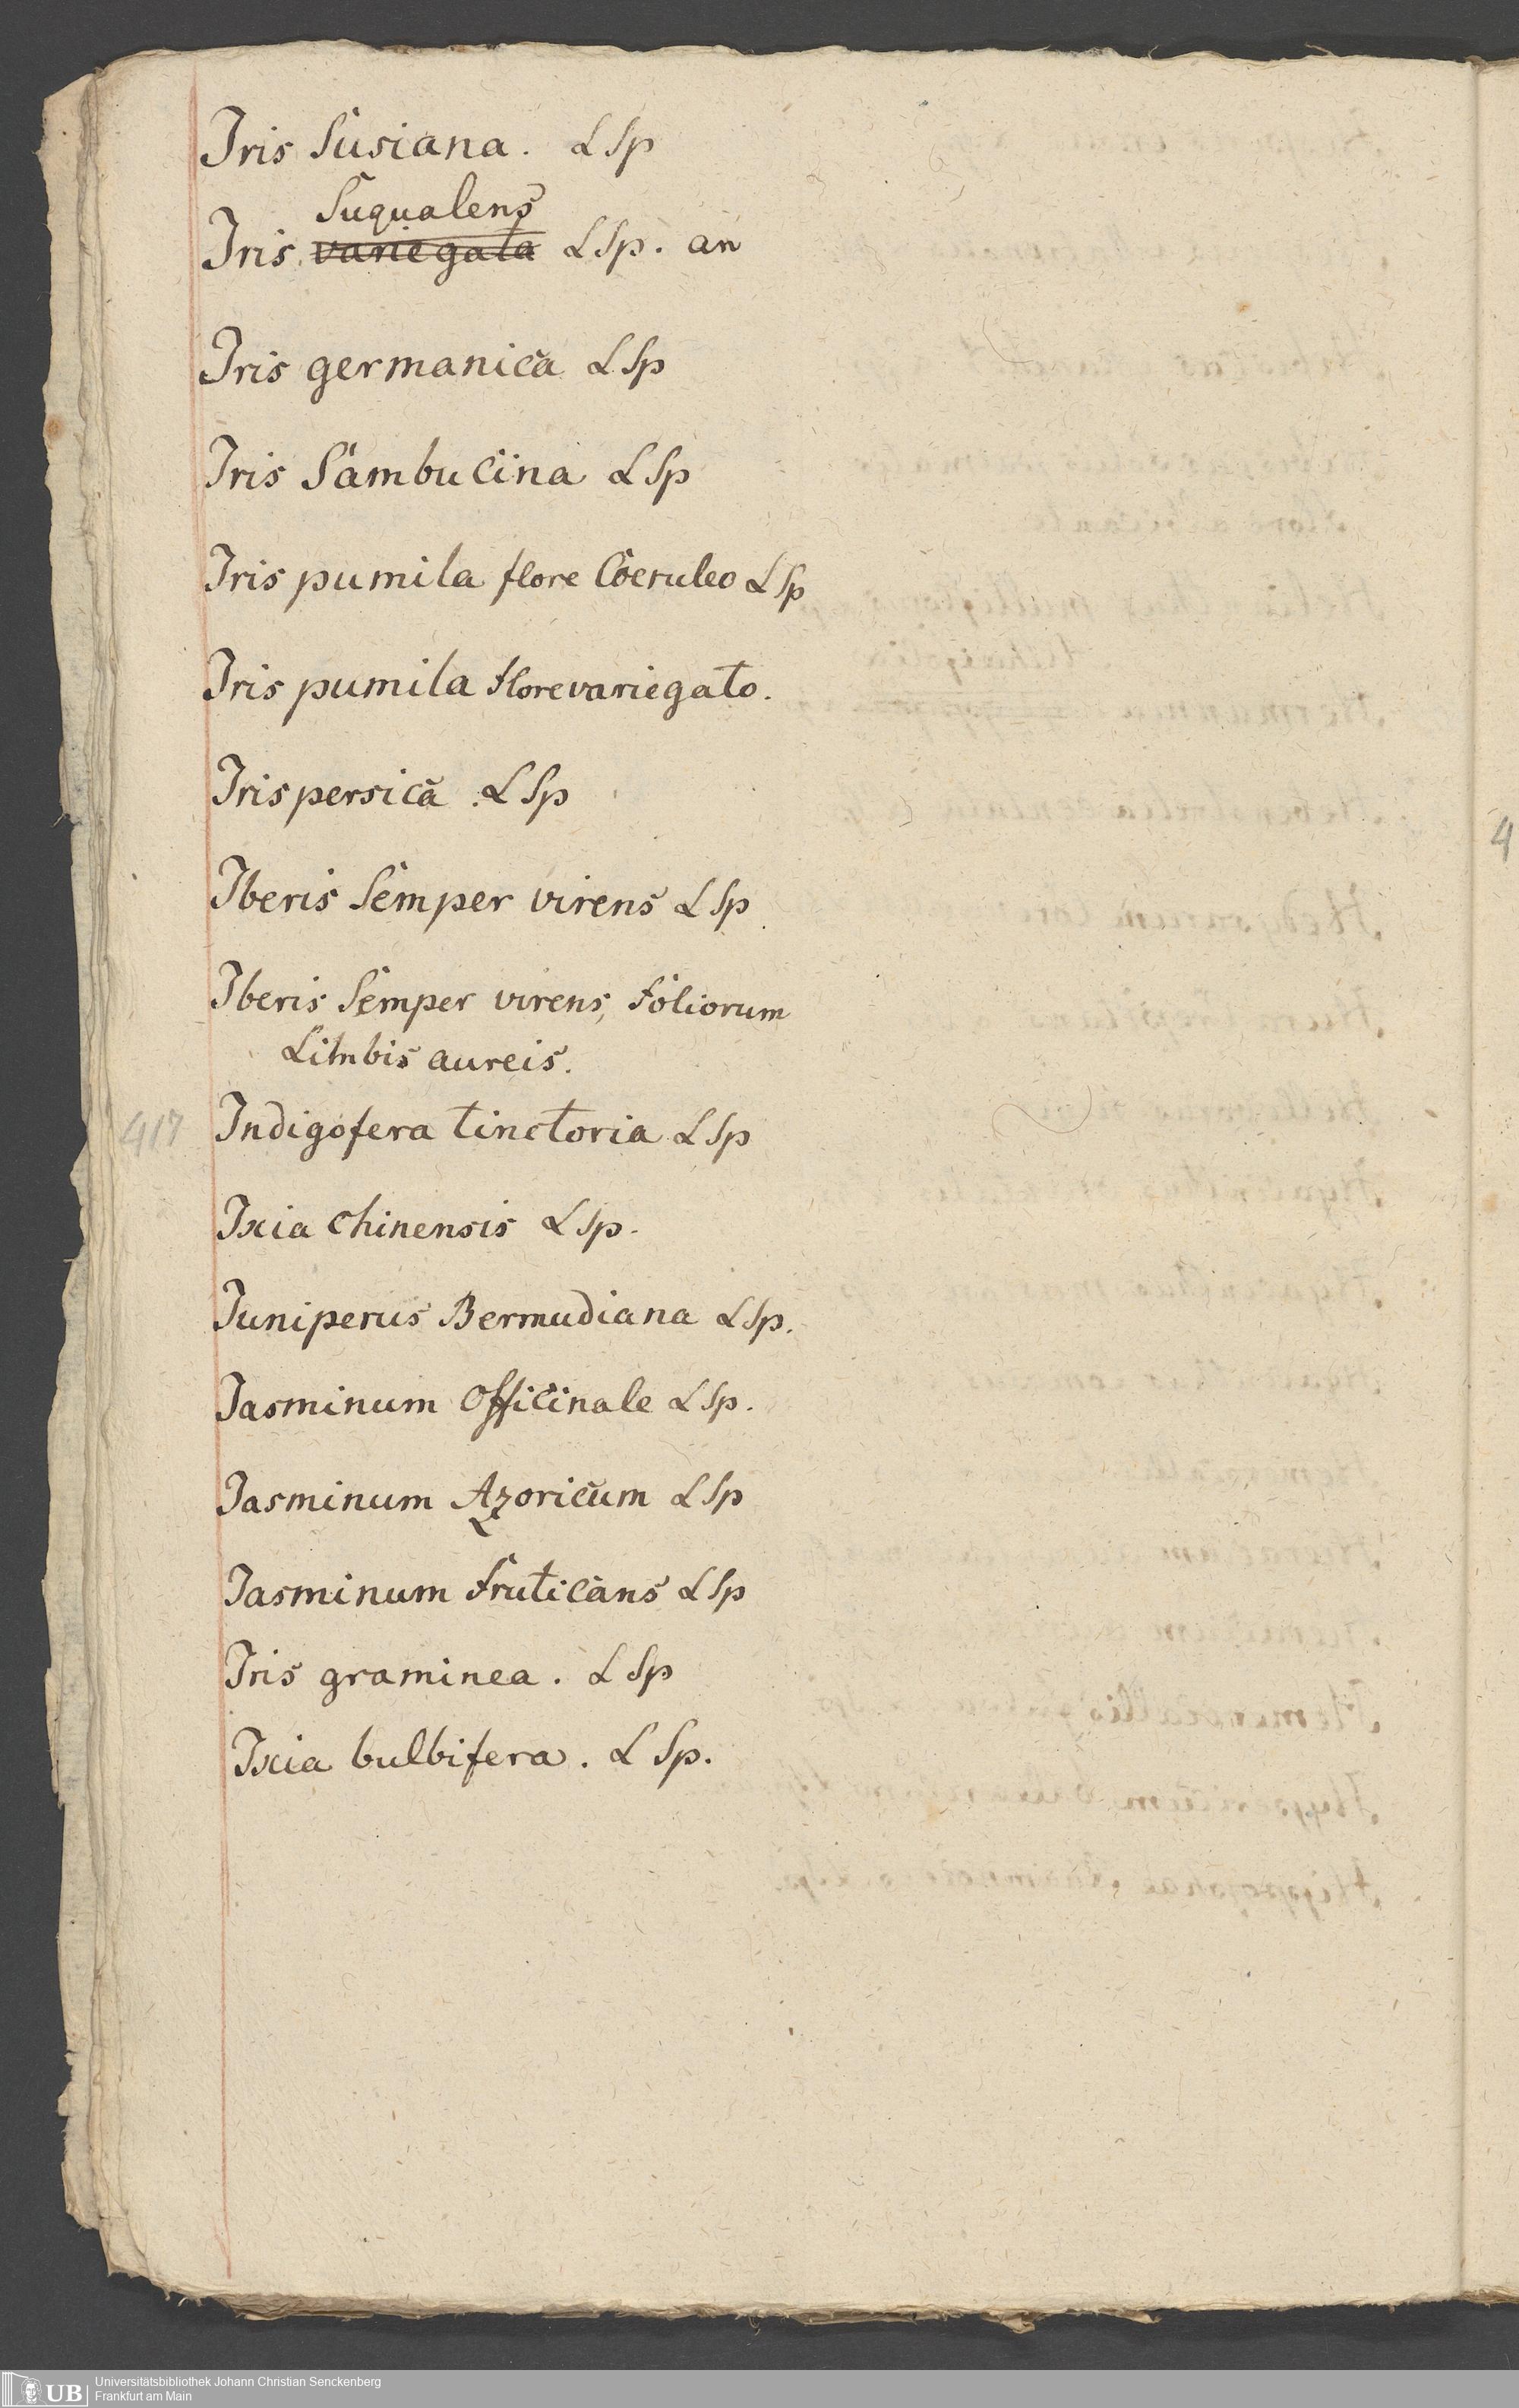 Iris Susiana. L Sp
Suqualens
Iris variegata L Sp. an
Iris germanica L Sp
Iris Sambucina L Sp
Iris pumila flore Coeruleo L Sp
Iris pumila flore variegato.
Iris persica. L Sp
Iberis Semper virens L Sp
Iberis Semper virens, foliorum
Limbis aureis.
417 Indigofera tinctoria L Sp
Ixia chinensis L Sp.
Juniperus Bermudiana L Sp.
Jasminum Officinale L Sp.
Jasminum Azoricum L Sp
Jasminum fruticans L Sp
Iris graminea. L Sp
Ixia bulbifera. L Sp.
4
UB
Universitätsbibliothek Johann Christian Senckenberg
Frankfurt am Main